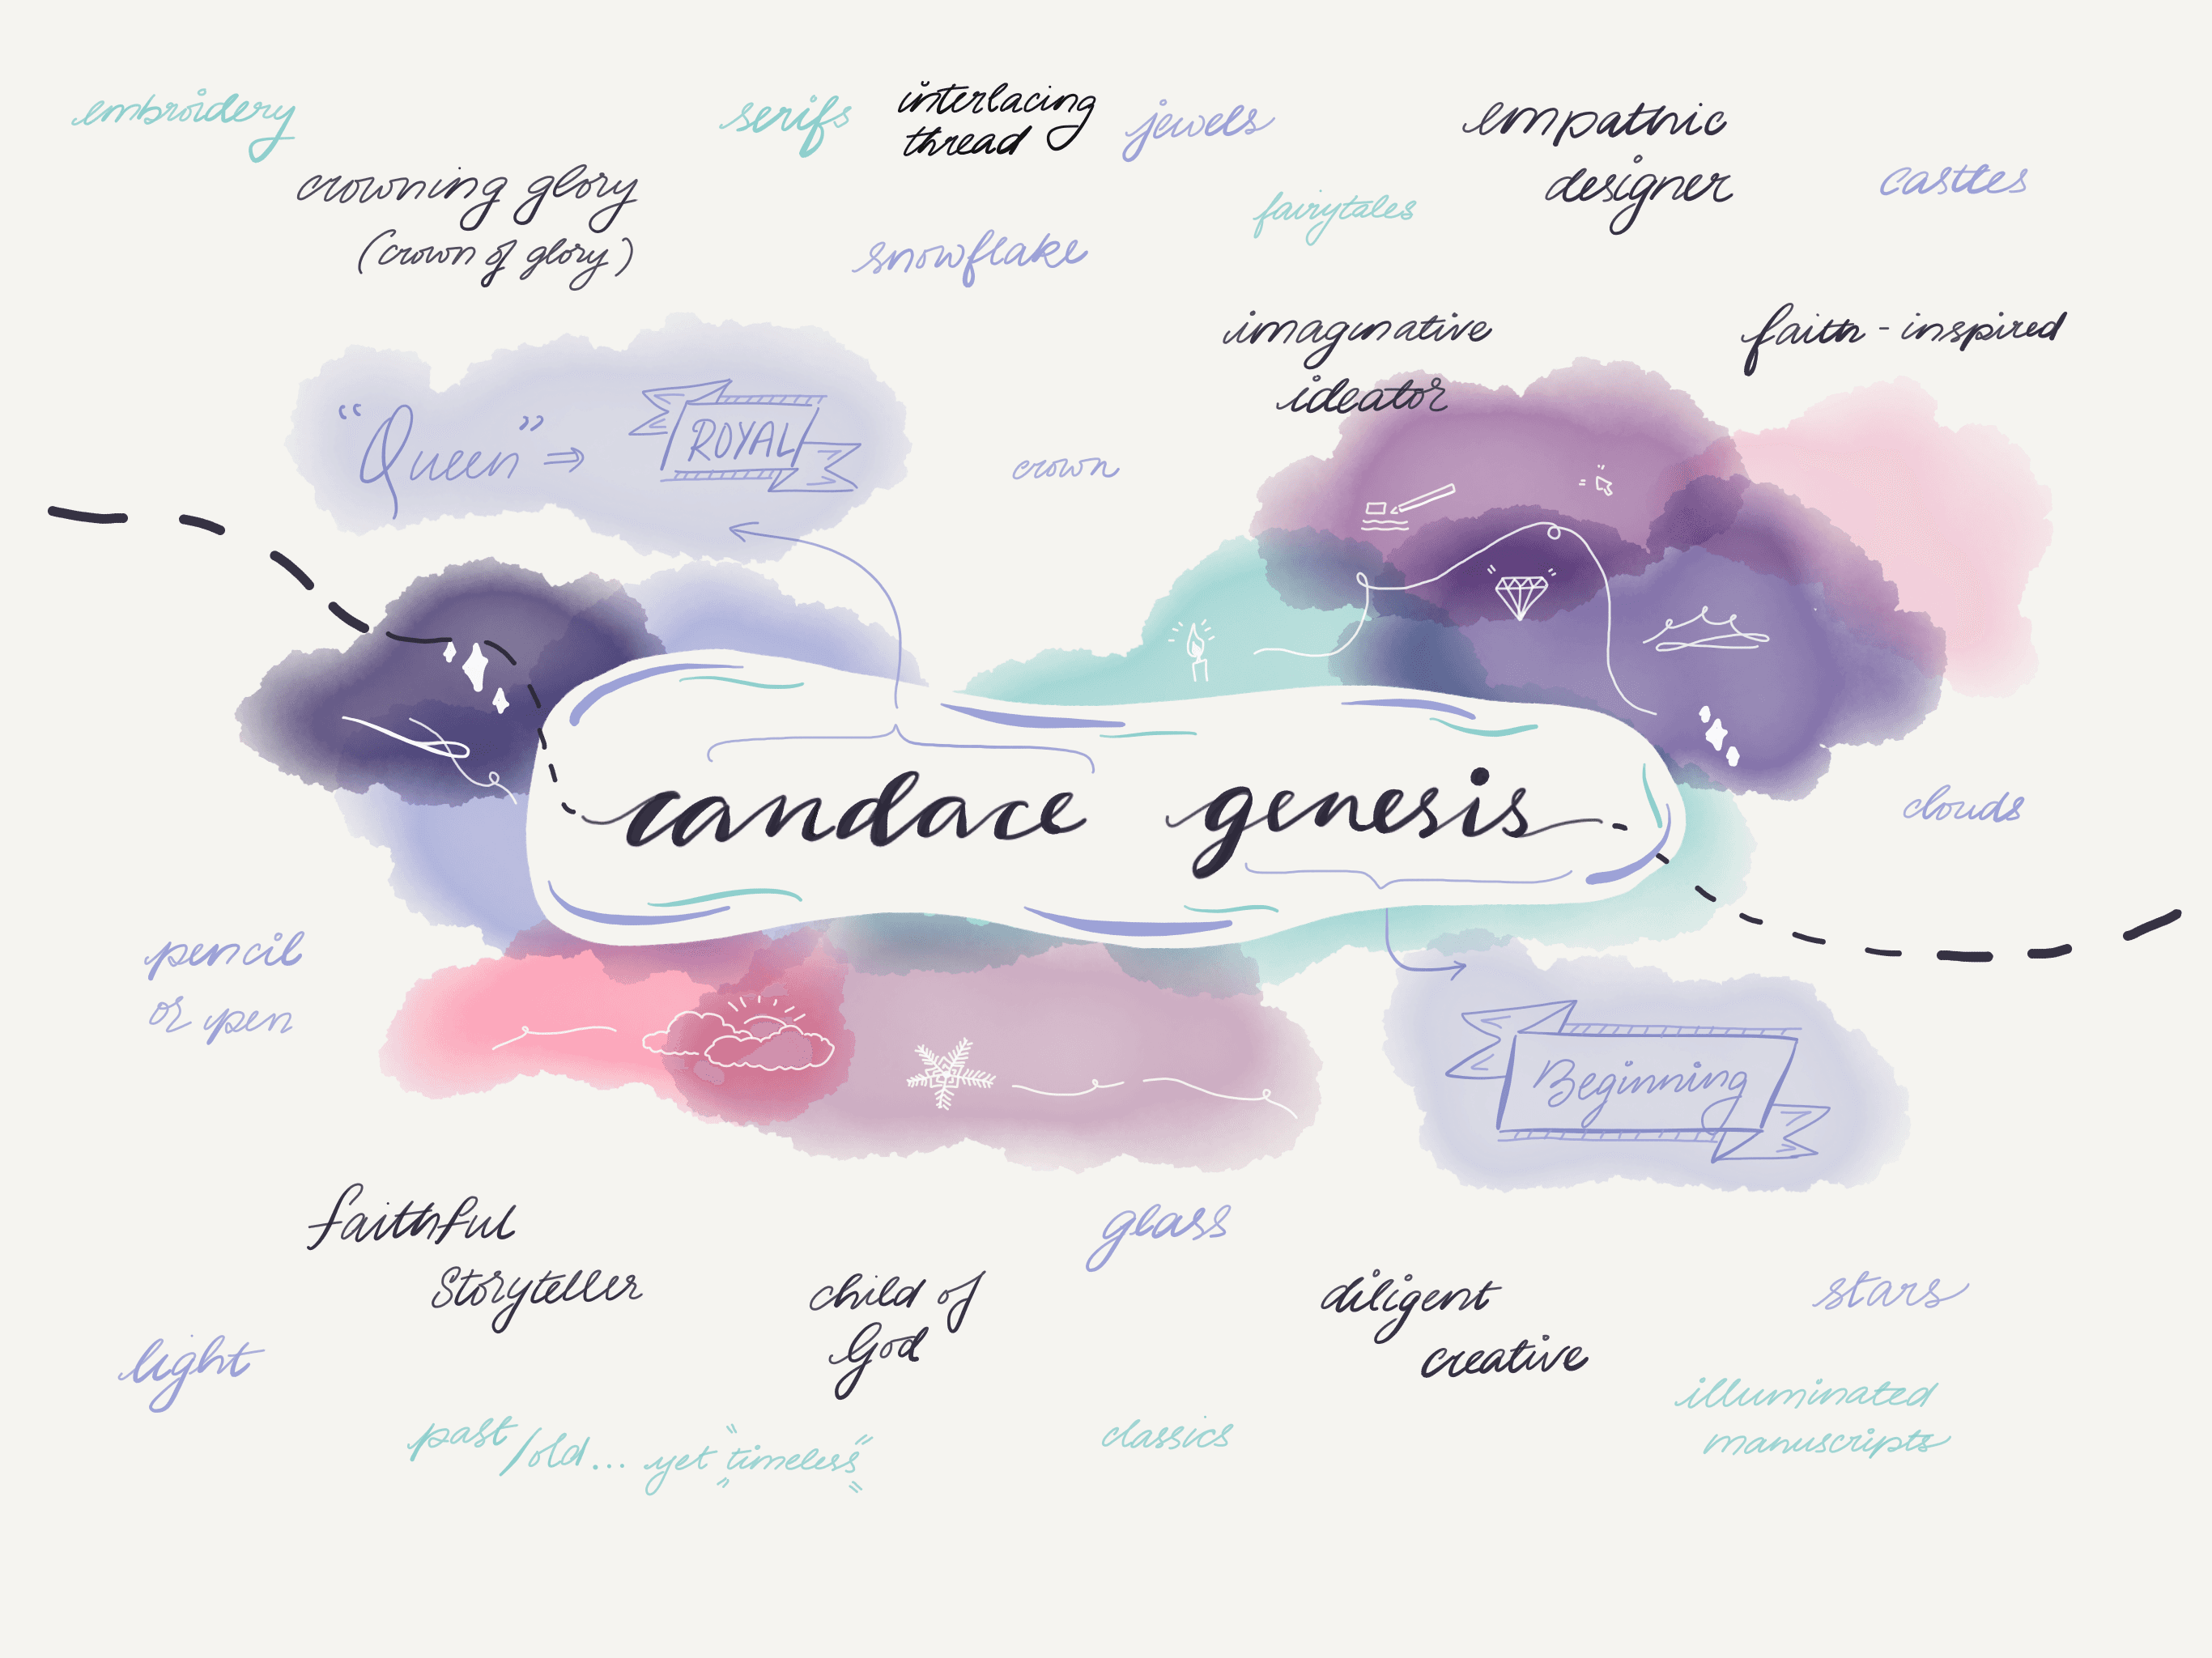 embroidery
serifs
interlacing
thread
jewels
empathic
designer
castles
crowning glory
(crown of glory)
snowflake
fairytales
imaginative
ideator
faith-inspired
"Queen" ⇒ ROYAL
crown
candace genesis
clouds
pencil
or pen
Beginning
faithful
Storyteller
child of
God
glass
diligent
creative
stars
light
past/old... yet "timeless"
classics
illuminated
manuscripts